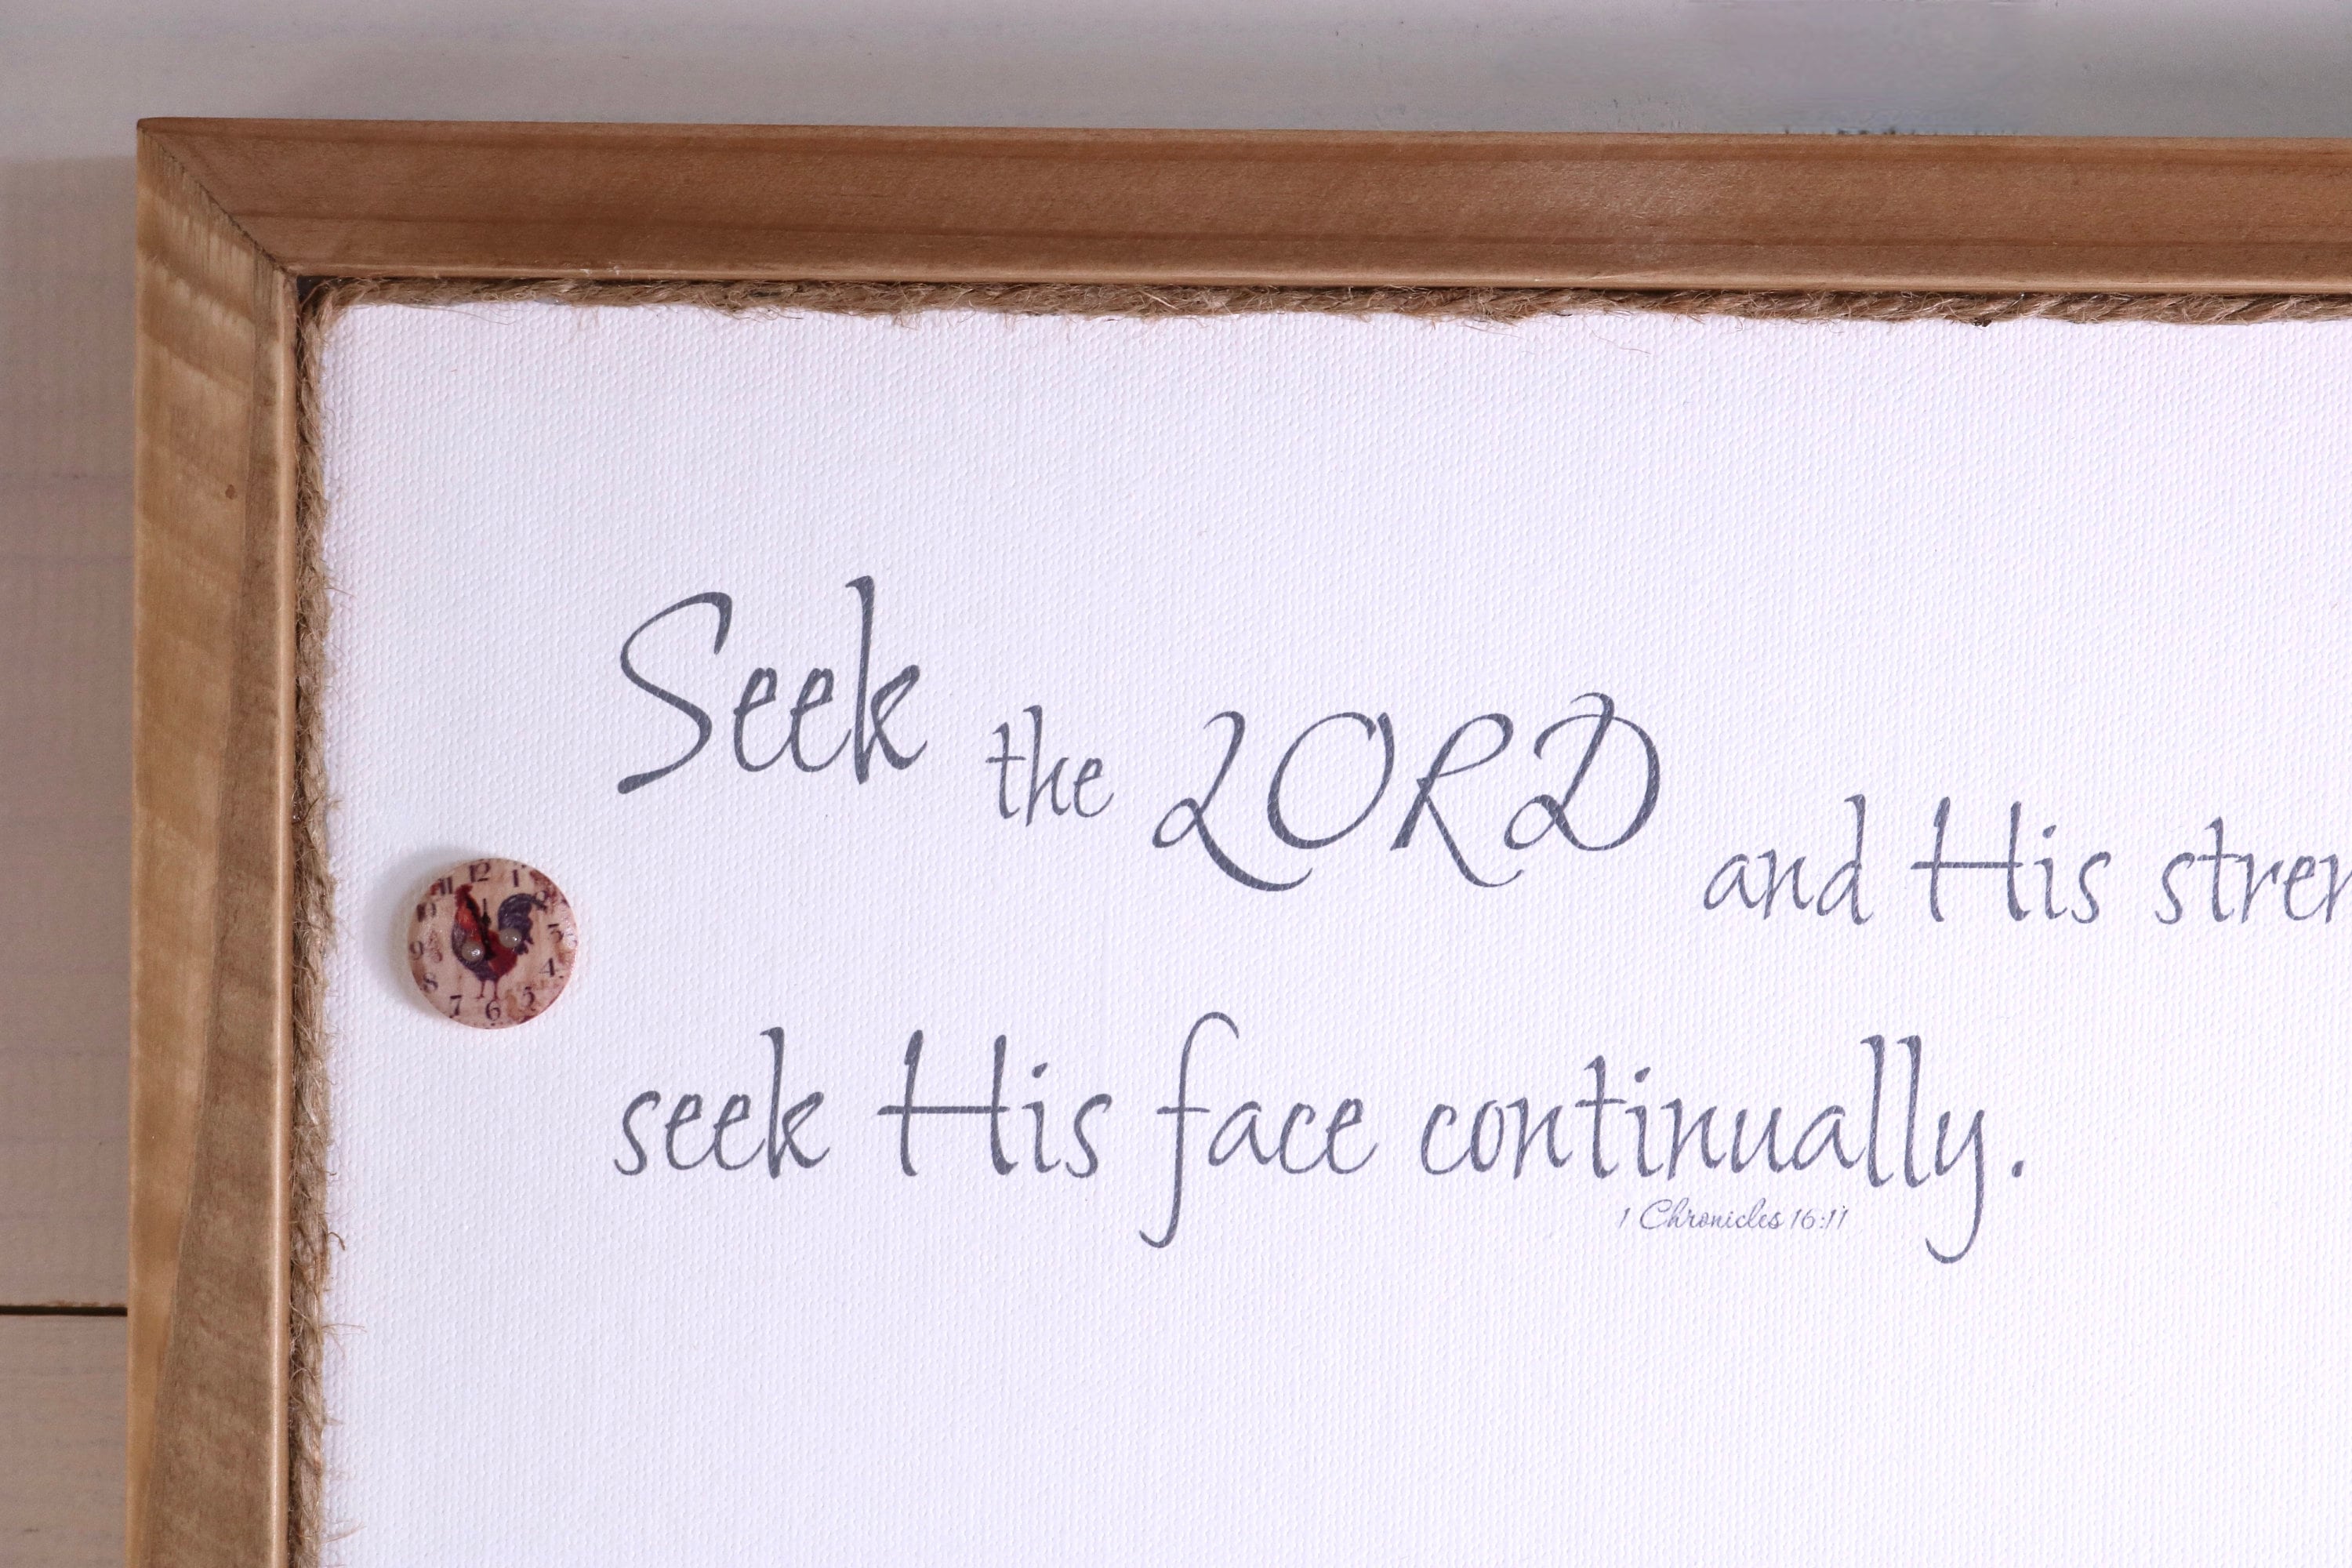 Seek the LORD and His stren
seek His face continually.
1 Chronicles 16:11
12
1
9
8
7
6
5
4